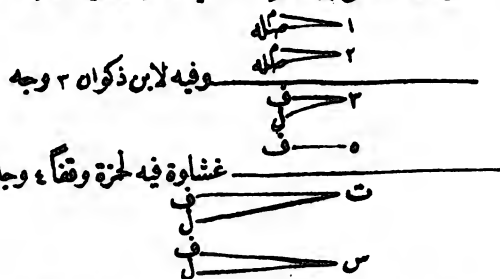 ١ صله م
٢ صله م
وفيه لابن ذكوان ٣ وجه
٣ ف
ل
٥ ف
غشاوة فيه لحمزة وقفاً ٤ وجه
ت ف
ل
س ف
ل